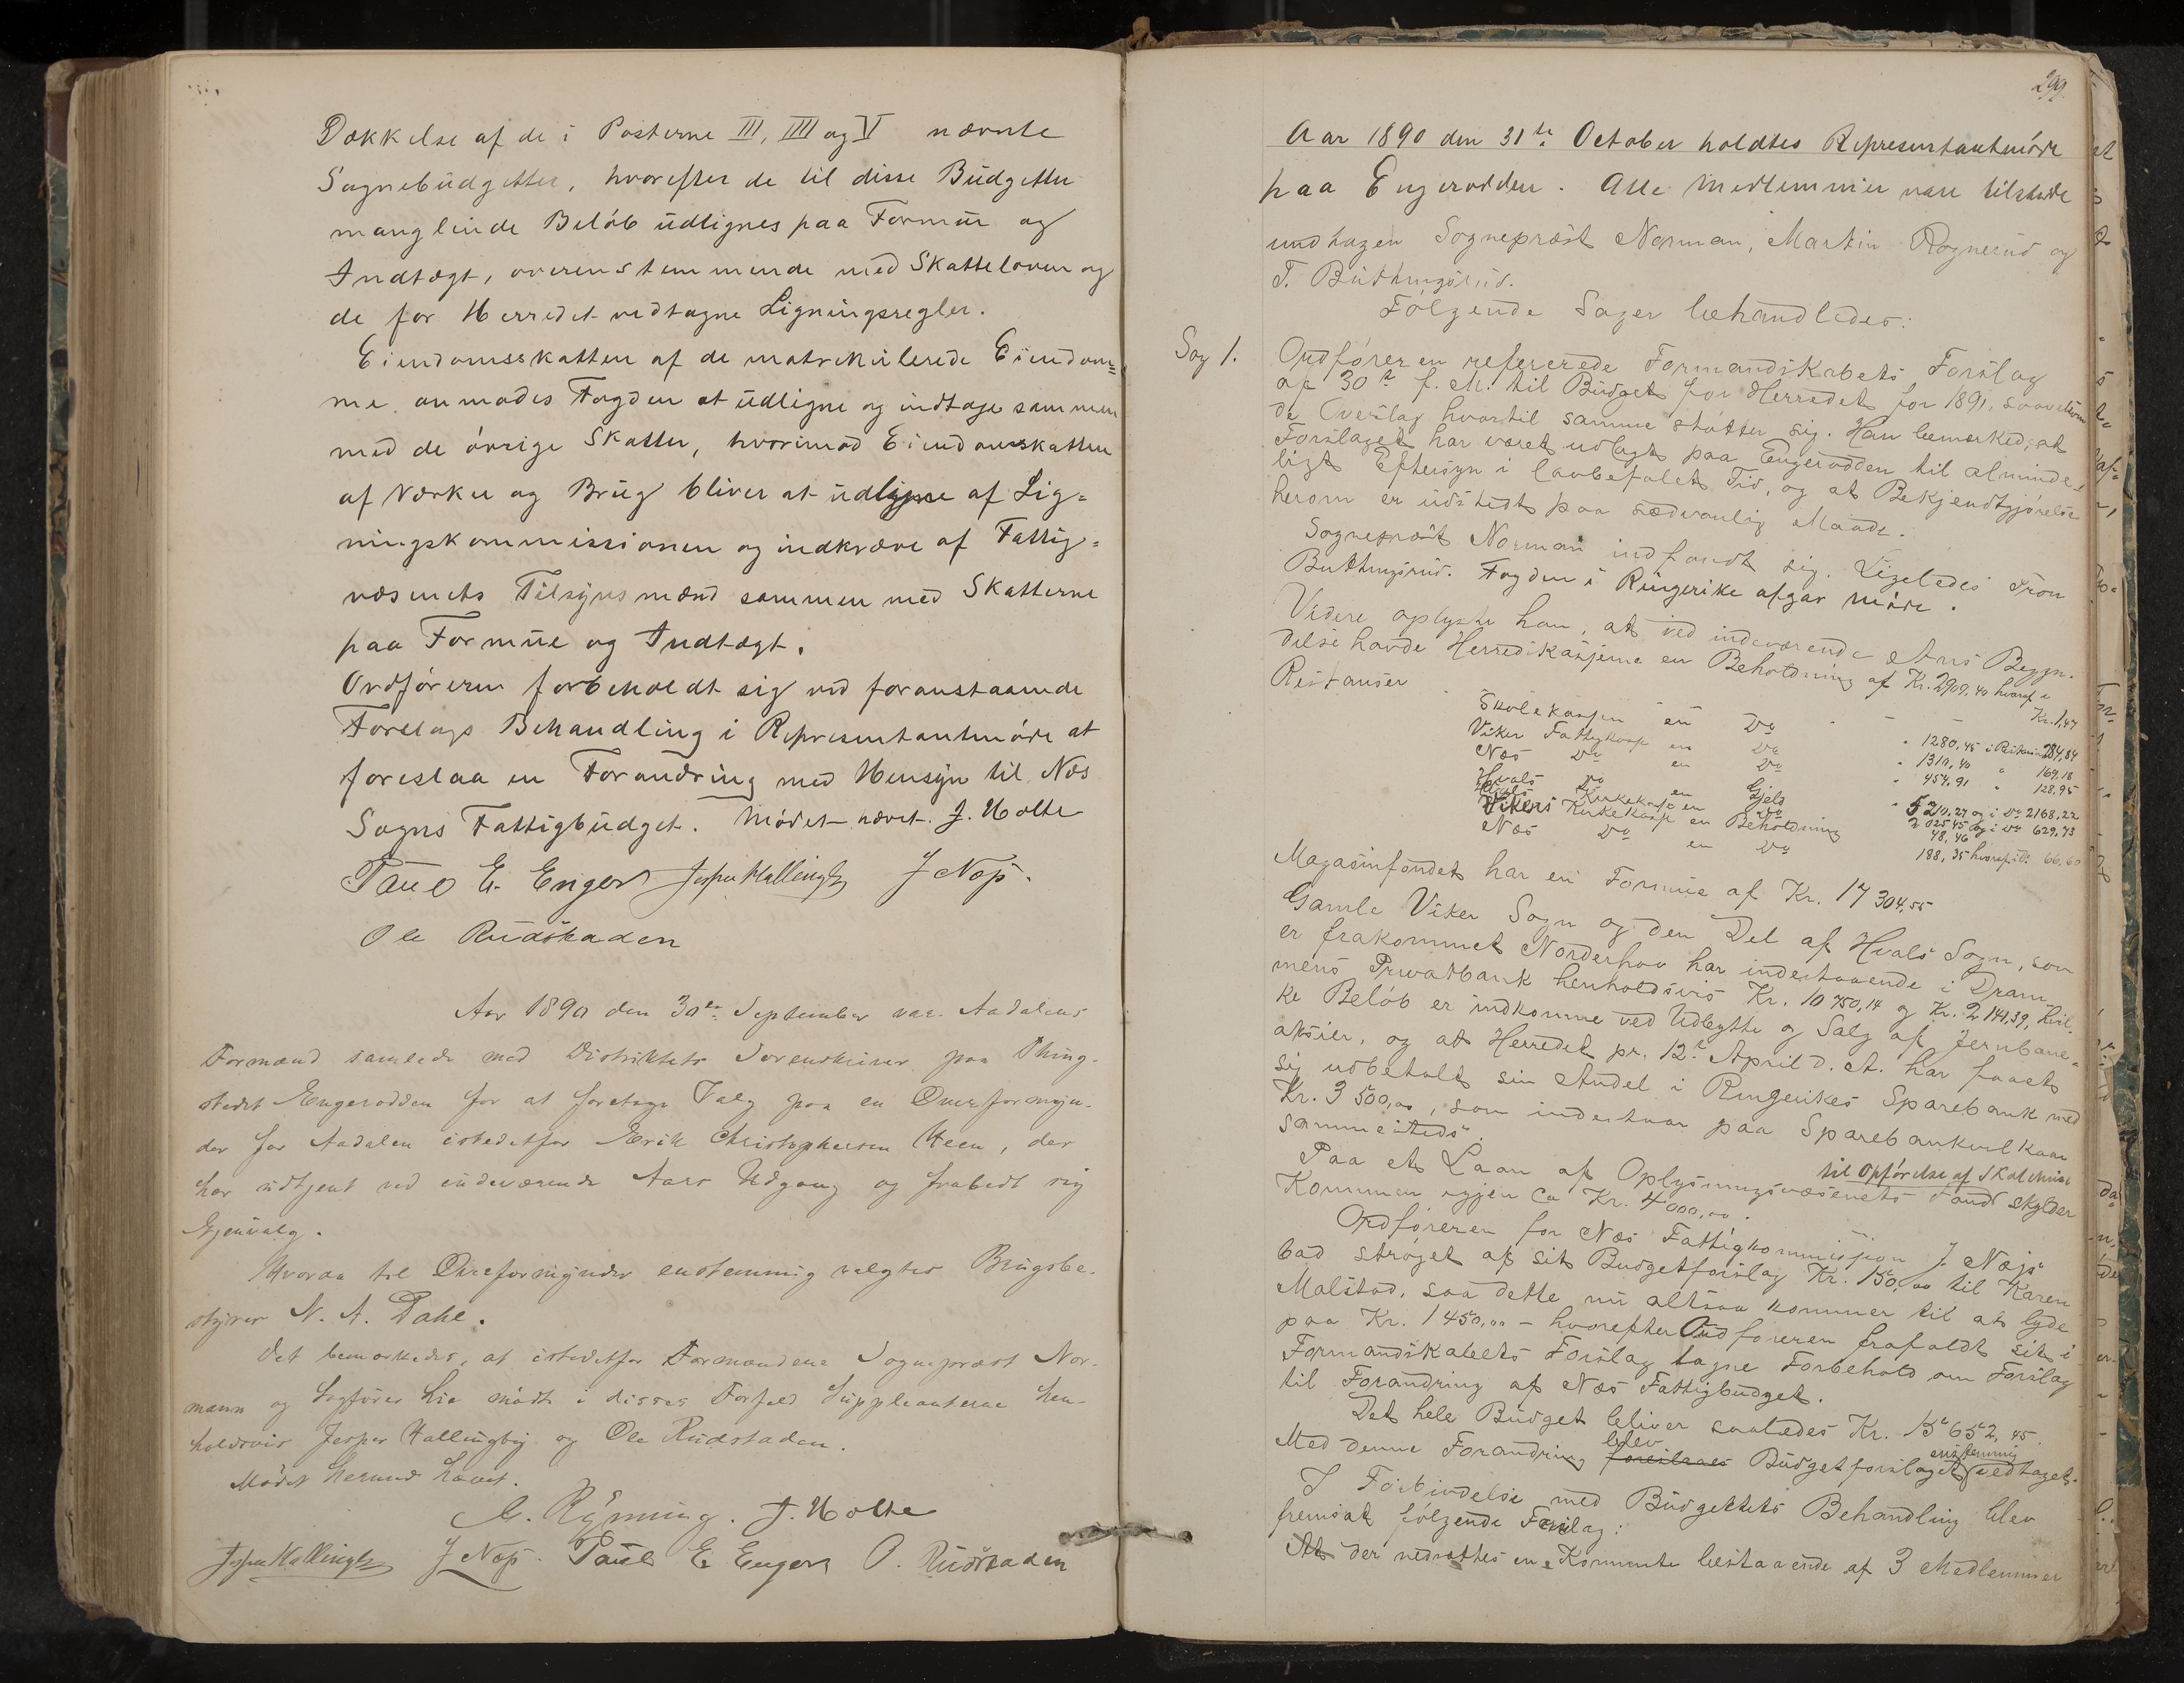 Dækkelse af de i Posterne III, IIII og V nævnte
Sognebudgetter, hvorefter de til disse Budgetter
manglende Beløb udlignes paa Formue og
Indtægt, overensstemmende med Skatteloven og
de for Herredet vedtagne Ligningsregler.
Eiendomsskatten af de matrikulerede Eiendom=
me anmodes Fogden at udligne og indtage sammen
med de øvrige Skatter, hvorimod Eiendomsskatten
af Værker og Brug bliver at udligne af Lig=
ningskommissionen og indkræve af Fattig=
væsenets Tilsynsmænd sammen med Skatterne
paa Formue og Indtægt.
Ordføreren forbeholdt sig ved foranstaaende
Forslags Behandling i Representantmøde at
foreslaa en Forandring med Hensyn til Næs
Sogns Fattigbudget. Mødet hævet. J. Holte
Paul E. Enger Jesper Hallingby J Næs.
Ole Rudstaden
Aar 1890 den 30te September var Aadalens
Formænd samlede med Distriktets Sorenskriver paa Thing-
stedet Engerodden for at foretage Valg paa en Overformyn-
der for Aadalen istedetfor Erik Christophersen Steen, der
har udtjent ved indeværende Aars Udgang og frabedt sig
Gjenvalg.
Hvoraa til Overformynder enstemmig valgtes Brugsbe-
styrer N. A. Dahl.
Det bemærkedes, at istedetfor Formændene Sogneprest Nor-
mann og Lagfører Lie mødte i disses Forfald Suppleanterne hen-
holdsvis Jesper Hallingby og Ole Rudstaden.
Mødet herved hævet.
Rynning. J. Holte
Jesper Hallingby J Næs. Paul E Enger O. Rudstaden
299.
Aar 1890 den 31te October holdtes Representantmøde
paa Engerodden. Alle Medlemmer vare tilstede
undtagen Sogneprest Norman, Martin Rognerud og
T. Buttingsrud.
Følgende Sager behandledes:
Sag 1. Ordføreren refererede Formandskabets Forslag
af 30te f. M. til Budget for Herredet for 1891, saavelsom
de Overslag hvortil samme støtter sig. Han bemærked, at
Forslaget har været udlagt paa Engerodden til alminde-
ligt Eftersyn i lovbefalet Tid, og at Bekjendtgjørelse
herom er udstedt paa sædvanlig Maade.
Sogneprest Norman indfandt sig. Ligeledes Tron
Buttingsrud. Fogden i Ringerike afgav Møde.
Videre oplyste han, at ved indeværende Aars Begyn-
delse havde Herredskassen en Beholdning af Kr. 2909,40 hvoraf i
Restanser Kr. 1,47
Skolekassen en Do " 1280,45 i Restancer 284,84
Viker Fattigkasse en Do " 1310,40 " 169,18
Næs Do en Do " 454,91 " 128,95
Hvals Do en Gjeld " 5210,27 og i Do 2168,22
Hvals Kirkekasse en Do 2025,45 og i Do 629,43
Vikers Kirkekasse en Beholdning 48,46
Næs Do en Do 188,35 hvoraf i Do 66,60
Magasinfondet har en Formue af Kr. 17 304,55
Gamle Viker Sogn og den Del af Hvals Sogn, som
er frakommet Norderhov har indestaaende i Dram-
mens Privatbank henholdsvis Kr. 10 750,14 og Kr. 2 141,39, hvil-
ke Beløb er indkomne ved Udbytte og Salg af Jernbane-
aksier, og at Herredet pr. 12te April d. A. har faaet
sig udbetalt sin Andel i Ringerikes Sparebank med
Kr. 3 500,00, som indestaar paa Sparebankvilkaar
sammesteds.
til Opførelse af Skolehuse
Paa et Laan af Oplysningsvæsenets Fond skylder
Kommunen igjen ca Kr. 4 000,00.
Ordføreren for Næs Fattigkommission J. Næs
bad strøget af sit Budgetforslag Kr. 150,00 til Karen
Malstad, saa dette nu altsaa kommer til at lyde
paa Kr. 1 450,00 – hvorefter Ordføreren frafaldt sit i
Formandskabets Forslag tagne Forbehold om Forslag
til Forandring af Næs Fattigbudget.
Det hele Budget bliver saaledes Kr. 15 652,45.
Med denne Forandring foreslaaes blev Budgetforslaget enstemmig vedtaget.
I Forbindelse med Budgettets Behandling blev
fremsat følgende Forslag:
At der nedsættes en Komite bestaaende af 3 Medlemmer